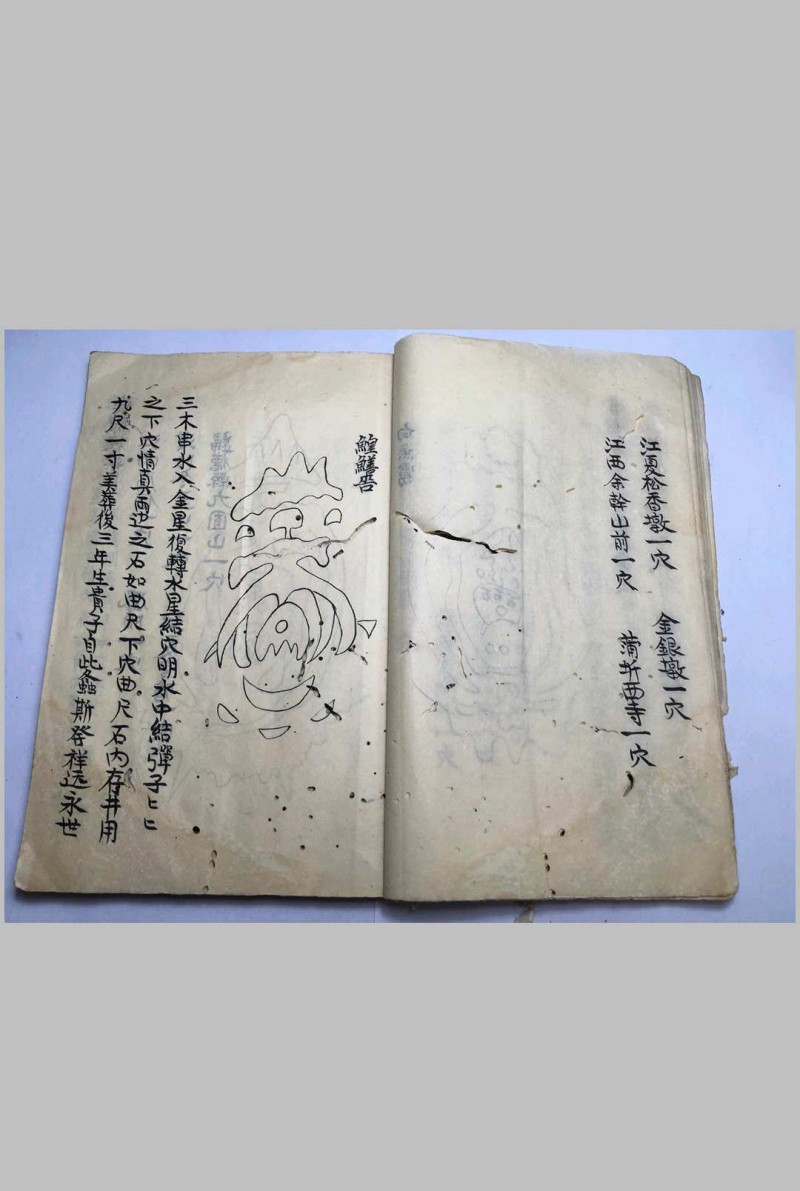 江夏松香墩一穴
金銀墩一穴
江西余幹山前一穴
蒲圻西寺一穴
鰉鱔告
三木串水入金星復轉水星結穴明水中結彈子匕匕
之下穴情真兩边之石如曲尺下穴曲尺石內存井用
九尺一寸美葬後三年生貴子自此螽斯登祥远永世